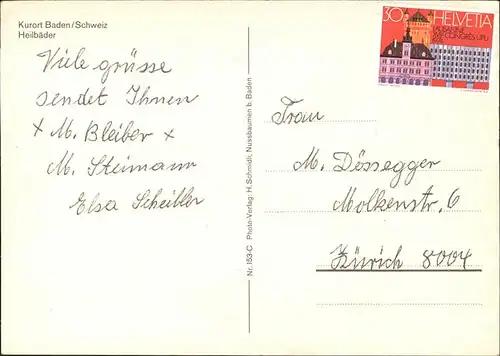 Kurort Baden/Schweiz
Heilbäder
Viele grüsse
sendet Ihnen
x M. Bleiber x
M. Steimann
Elsa Scheibler
Nr. 153-C Photo-Verlag: H. Schmidli, Nussbaumen b. Baden
30 HELVETIA
LAUSANNE
XVIIe CONGRÈS UPU
1974
Frau
M. Dössegger
Molkenstr. 6
Zürich 8004